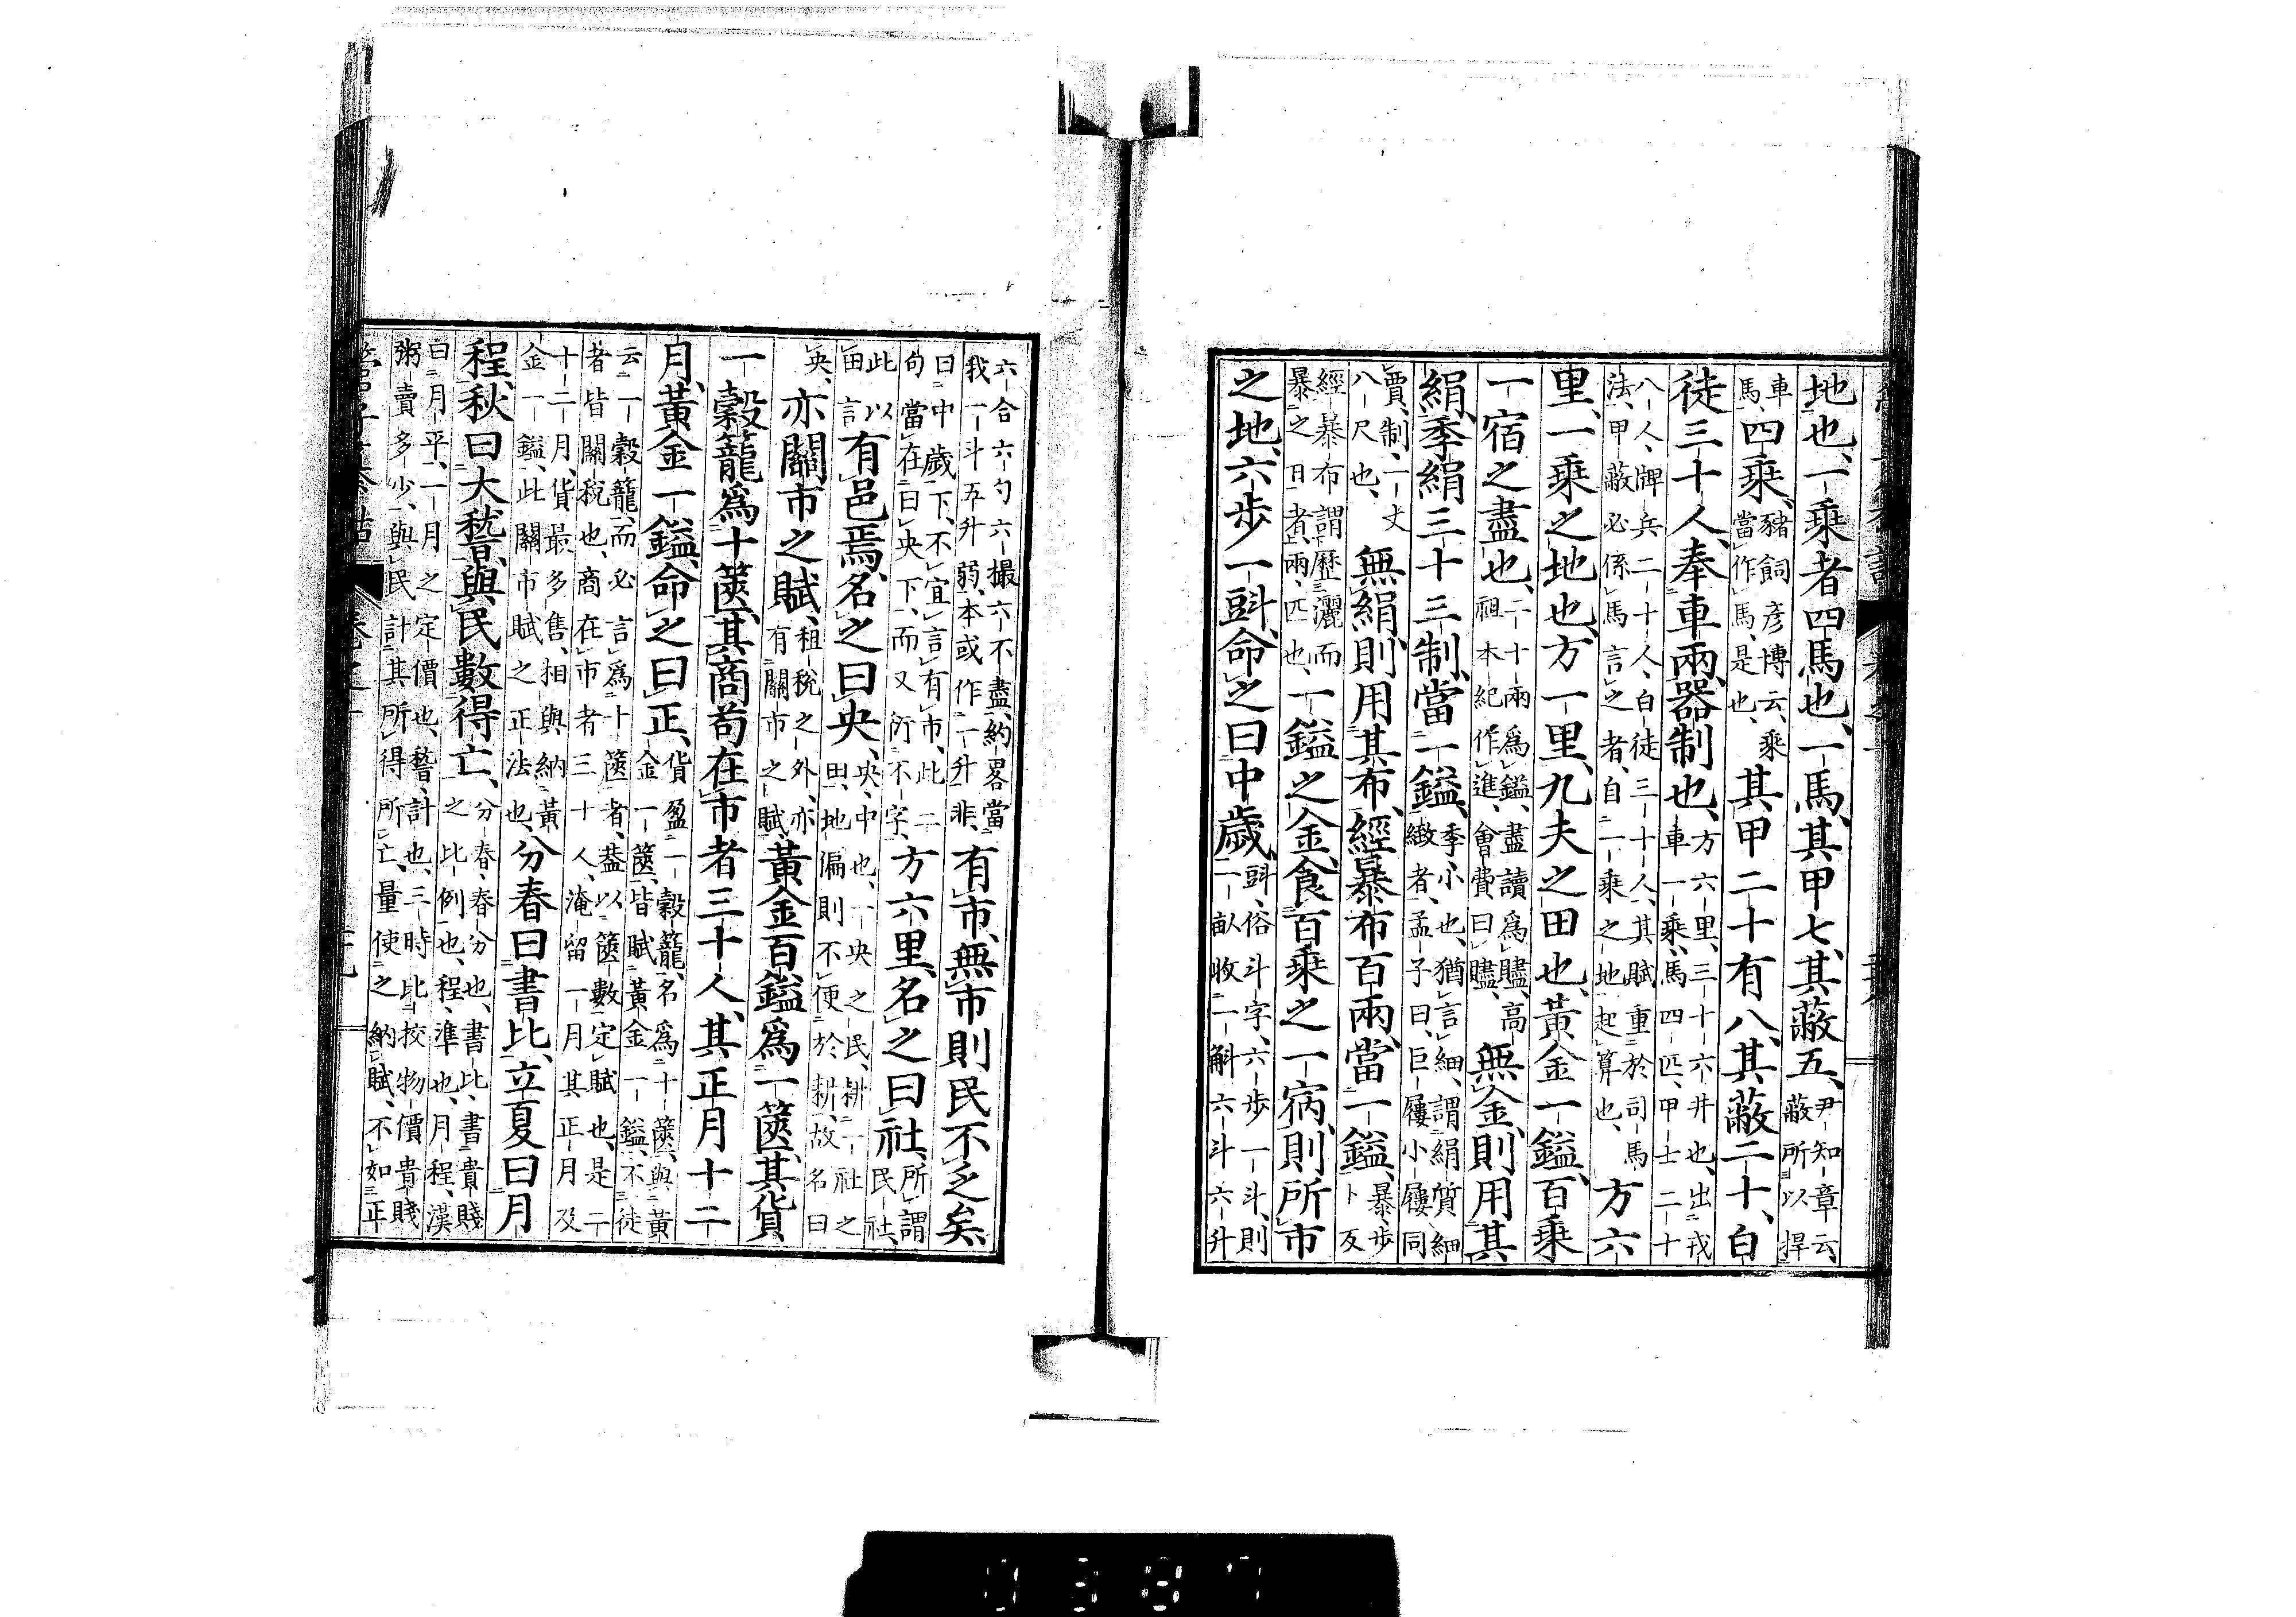 地也、一乘者四馬也、一馬、其甲七、其蔽五、尹知章云蔽所以捍
車馬、四乘、豬飼彥博云、乘當作馬、是也、其甲二十有八、其蔽二十、白
徒三十人、奉車兩、器制也、方六里、三十六井也、出戎車一乘、馬四匹、甲士二十
八人、牌兵二十人、白徒三十人、其賦重於司馬法、甲蔽必係馬言之者、自一乘之地起算也、方六
里、一乘之地也、方一里、九夫之田也、黃金一鎰、百乘
一宿之盡也、二十兩爲鎰、盡讀爲贐、高祖本紀作進、會費曰贐、無金則用其
絹、季絹三十三制、當一鎰、季、小也、猶言細、謂絹質細緻者、孟子曰、巨屨小屨同
賈、制、一丈八尺也、無絹則用其布、經暴布百兩、當一鎰、暴、步卜反
經暴布謂歷灑而暴之日者、兩、匹也、一鎰之金、食百乘之一宿、則所市
之地、六步一㪷、命之曰中歲、㪷、俗斗字、六步一斗、則一畝收一斛六斗六升
六合六勺六撮六不盡、約畧當我一斗五升弱、本或作一升非、有市、無市則民不乏矣、
曰中歲下、不宜言有市、此二句當在曰央下、而又衍不字、方六里、名之曰社、所謂民社、
此以田言有邑焉、名之曰央、央、中也、一央之民、耕一社之田、地偏則不便於耕、故名曰
央、亦關市之賦、租稅之外、亦有關市之賦、黃金百鎰爲一篋、其貨
一穀籠爲十篋、其商苟在市者三十人、其正月十二
月、黃金一鎰、命之曰正、貨盈一穀籠、名爲十篋、與黃金一篋、皆賦黃金一鎰、不徒
云一穀籠、而必言爲十篋者、葢以篋數定賦也、是二者皆關稅也、商在市者三十人、淹留一月其正月及
十二月、貨最多售、相與納黃金一鎰、此關市賦之正法也、分春曰書比、立夏曰月
程、秋曰大稽、與民數得亡、分春、春分也、書比、書貴賤之比例也、程、準也、月程、漢
曰月平、一月之定價也、稽、計也、三時比挍物價貴賤、粥賣多少、與民計其所得所亡、量使之納賦、不如正